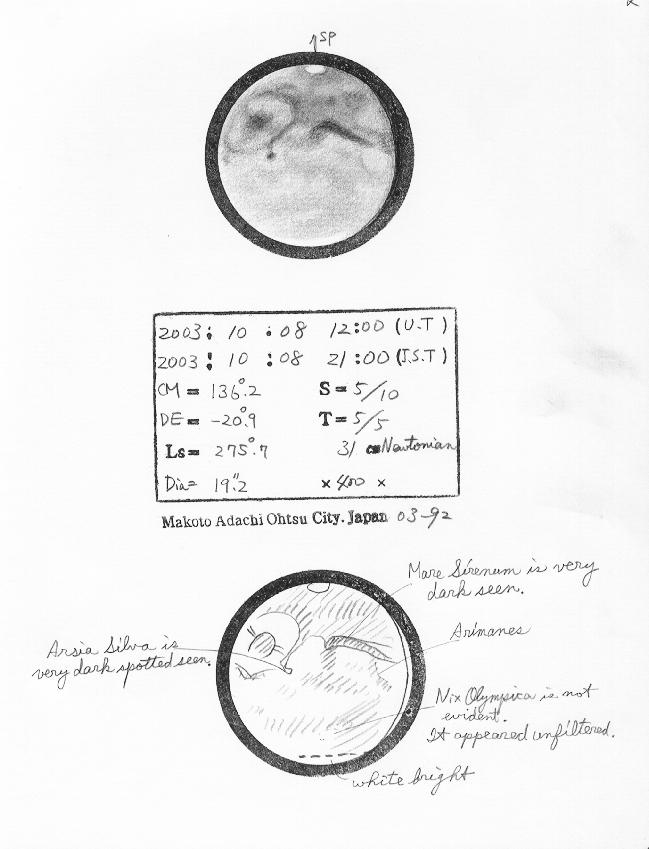 SP
2003 : 10 : 08 12:00 (U.T)
2003 : 10 : 08 21:00 (J.S.T)
CM = 136°.2 S = 5/10
DE = -20°.9 T = 5/5
Ls = 275°.7 31 cm Newtonian
Dia = 19".2 × 400 ×
Makoto Adachi Ohtsu City. Japan 03-92
Mare Sirenum is very
dark seen.
Arimanes
Arsia Silva is
very dark spotted seen.
Nix Olympica is not
evident.
It appeared unfiltered.
white bright